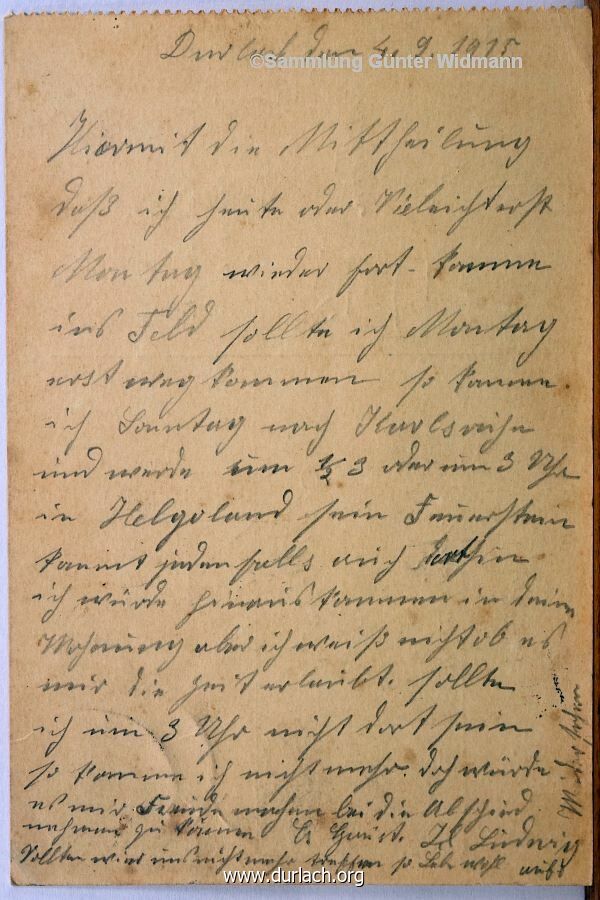 Durlach den 4. 9. 1915
©Sammlung Günter Widmann
Hiermit die Mittheilung
daß ich heute oder Vieleicht erst
Montag wieder fort-komme
ins Feld sollte ich Montag
erst weg kommen so komme
ich Sonntag nach Karlsruhe
und werde um ½ 3 oder um 3 Uhr
in Helgoland sein Feuerstein
kommt jedenfalls auch dorthin
ich würde hinaus kommen in deine
Wohnung aber ich weiß nicht ob es
mir die Zeit erlaubt. sollte
ich um 3 Uhr nicht dort sein
so komme ich nicht mehr. doch würde
es mir Freude machen bei dir Abschied
nehmen zu können Es Grüßt. Ludwig
Sollten wir uns nicht mehr treffen so Lebe wohl aufs
Wiedersehen
www.durlach.org